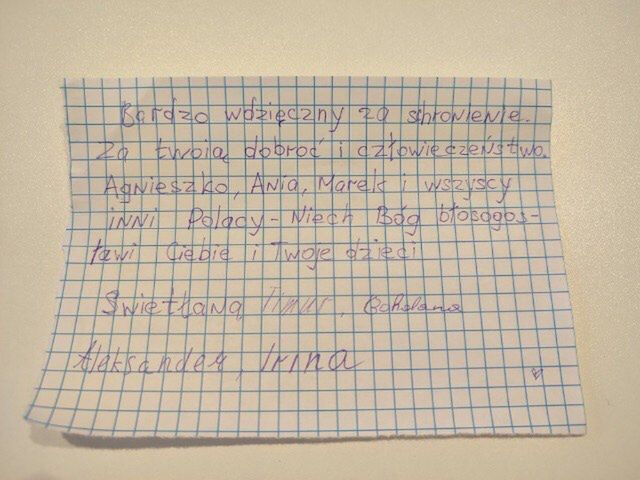 Bardzo wdzięczny za schronienie.
Za twoią dobroć i człowieczeństwo.
Agnieszko, Ania, Marek i wszyscy
inni Polacy - Niech Bóg błosogos-
ławi Ciebie i Twoje dzieci
Swietłana Timur,
Aleksander, Irina